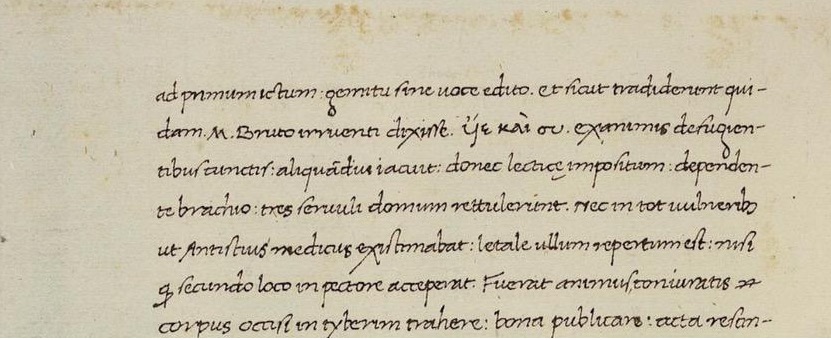 ad primum ictum: gemitu sine uoce edito. et sicut tradiderunt qui-
dam. M. Bruto irruenti dixisse. ὑιε καὶ συ. exanimis defugien-
tibus cunctis: aliquādiu iacuit: donec lecticę impositum: dependen-
te brachio: tres seruuli domum rettulerunt. Nec in tot uulneribꝫ
ut Antistius medicus existimabat: letale ullum repertum est: nisi
ꝙ secundo loco in pectore acceperat. Fuerat animus coniuratis &
corpus occisi in tyberim trahere: bona publicare: acta rescin-